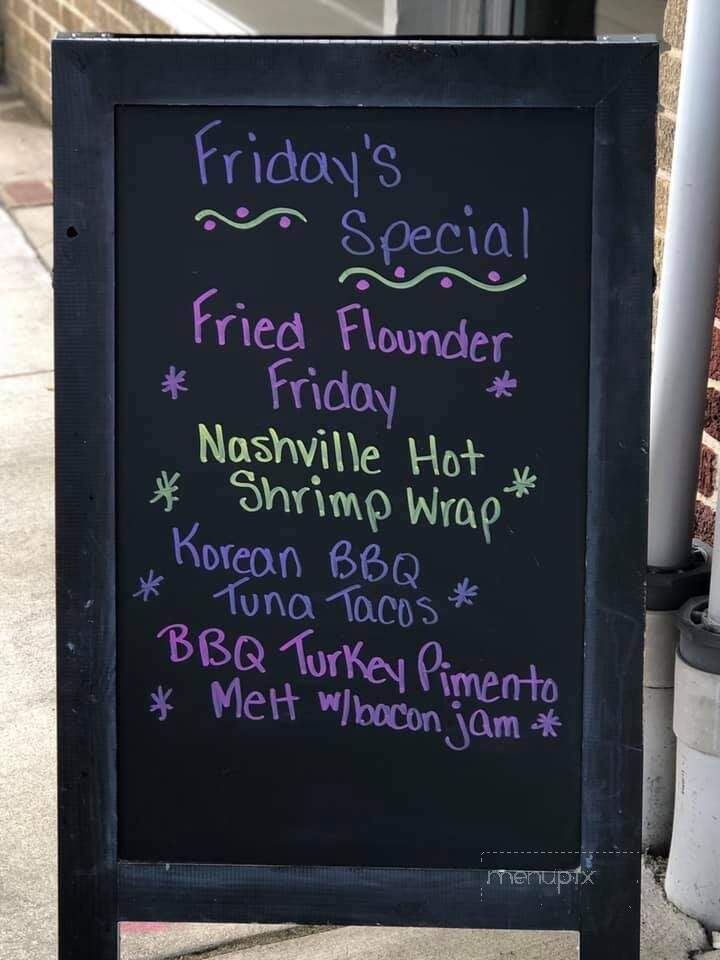 Friday's
Special
Fried Flounder
* Friday *
Nashville Hot
* Shrimp Wrap *
Korean BBQ
* Tuna Tacos *
BBQ Turkey Pimento
* Melt w/bacon jam *
menupix